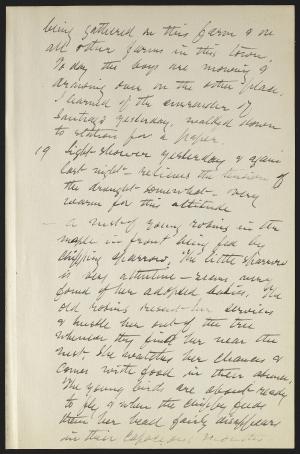 being gathered on this farm & on
all other farms in this town.
To day the boys are mowing &
drawing over on the other place.
I learned of the surrender of
Santiago yesterday, walked down
to station for a paper.
19 Light shower yesterday & again
last night - relieves the tension of
the drought somewhat - very
warm for this altitude
- A nest of young robins in the
maple in front being fed by
chipping sparrow. The little sparrow
is very attentive - seems very
fond of her adopted babies. The
old robins resent her services
& hustle her out of the tree
whenever they find her near the
nest. She watches her chances &
comes with food in their absence.
The young birds are about ready
to fly & when the chippie feeds
them her head fairly disappears
in their capacious mouths